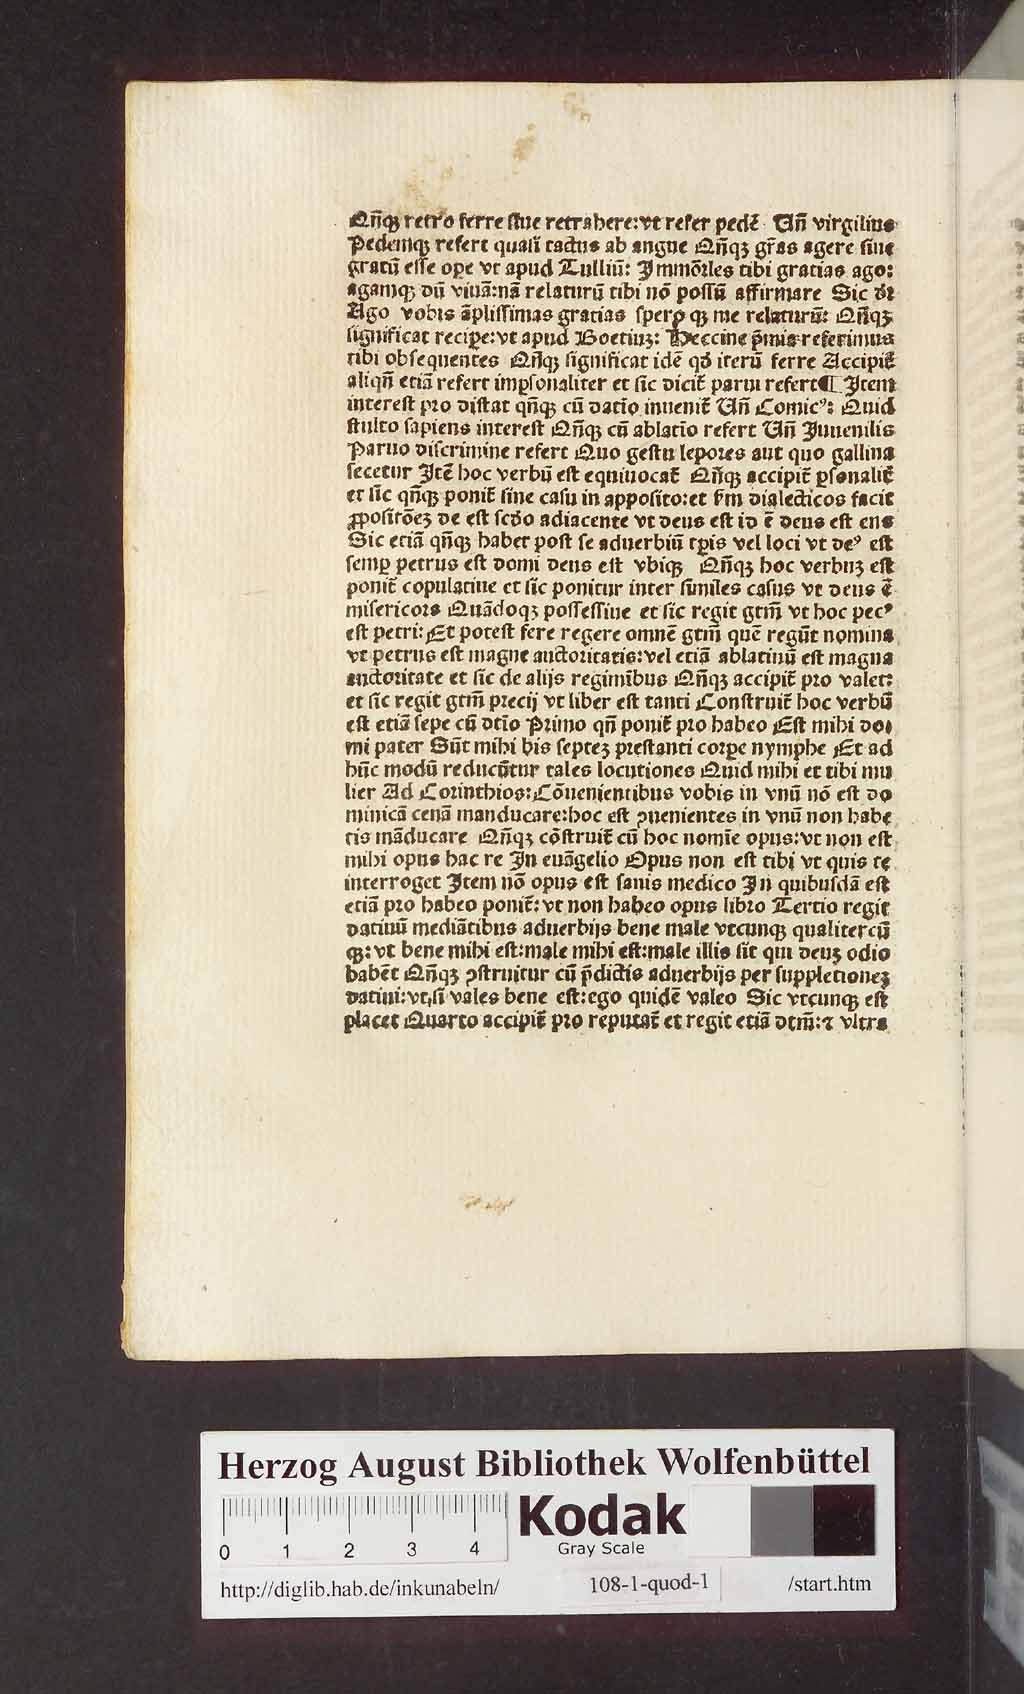 Qn̄qꝫ retro ferre siue retrahere: vt refer pedē Un̄ virgilius
Pedemqꝫ refert quasi tactus ab angue Qn̄qꝫ gr̄as agere siue
gratū esse ope vt apud Tulliū: Immōrles tibi gratias ago:
agamqꝫ dū viuā: nā relaturū tibi nō possū affirmare Sic dr̄
Ago vobis āplissimas gratias spero qꝫ me relaturū: Qn̄qꝫ
significat recipe: vt apud Boetiuꝫ: Heccine p̄mia referimus
tibi obsequentes Qn̄qꝫ significat idē qd̄ iterū ferre Accipit̄
aliqn̄ etiā refert imꝑsonaliter et sic dicit̄ parui refert ¶ Item
interest pro distat qn̄qꝫ cū datīo inuenit̄ Un̄ Comicꝰ: Quid
stulto sapiens interest Qn̄qꝫ cū ablatīo refert Un̄ Iuuenilis
Paruo discrimine refert Quo gestu lepores aut quo gallina
secetur Itē hoc verbū est equiuocat̄ Qn̄qꝫ accipit̄ ꝑsonalit̄
et sic qn̄qꝫ ponit̄ sine casu in apposito: et ẜm dialecticos facit
ꝓpositōeꝫ de est scd̄o adiacente vt deus est id ē deus est ens
Sic etiā qn̄qꝫ habet post se aduerbiū tꝑis vel loci vt deꝰ est
semꝑ petrus est domi deus est vbiqꝫ Qn̄qꝫ hoc verbuꝫ est
ponit̄ copulatiue et sic ponitur inter similes casus vt deus ē
misericors Quādoqꝫ possessiue et sic regit gtm̄ vt hoc pecꝰ
est petri: Et potest fere regere omnē gtm̄ quē regūt nomina
vt petrus est magne auctoritatis: vel etiā ablatiuū est magna
auctoritate et sic de alijs regimibus Qn̄qꝫ accipit̄ pro valet:
et sic regit gtm̄ precij vt liber est tanti Construit̄ hoc verbū
est etiā sepe cū dtīo Primo qn̄ ponit̄ pro habeo Est mihi do⸗
mi pater Sūt mihi bis septeꝫ prestanti corꝑe nymphe Et ad
hūc modū reducūtur tales locutiones Quid mihi et tibi mu
lier Ad Corinthios: Cōuenientibus vobis in vnū nō est do
minicā cenā manducare: hoc est ꝯuenientes in vnū non habe
tis māducare Qn̄qꝫ cōstruit̄ cū hoc nomīe opus: vt non est
mihi opus hac re In euāgelio Opus non est tibi vt quis te
interroget Item nō opus est sanis medico In quibusdā est
etiā pro habeo ponit̄: vt non habeo opus libro Tertio regit
datiuū mediātibus aduerbijs bene male vtcunqꝫ qualitercū
qꝫ: vt bene mihi est: male mihi est: male illis sit qui deuꝫ odio
habēt Qn̄qꝫ ꝯstruitur cū p̄dictis aduerbijs per suppletioneꝫ
datiui: vt si vales bene est: ego quidē valeo Sic vtcunqꝫ est
placet Quarto accipit̄ pro reputat̄ et regit etiā dtm̄: ⁊ vltra
Herzog August Bibliothek Wolfenbüttel
0 1 2 3 4
Kodak
Gray Scale
http://diglib.hab.de/inkunabeln/ 108-1-quod-1 /start.htm